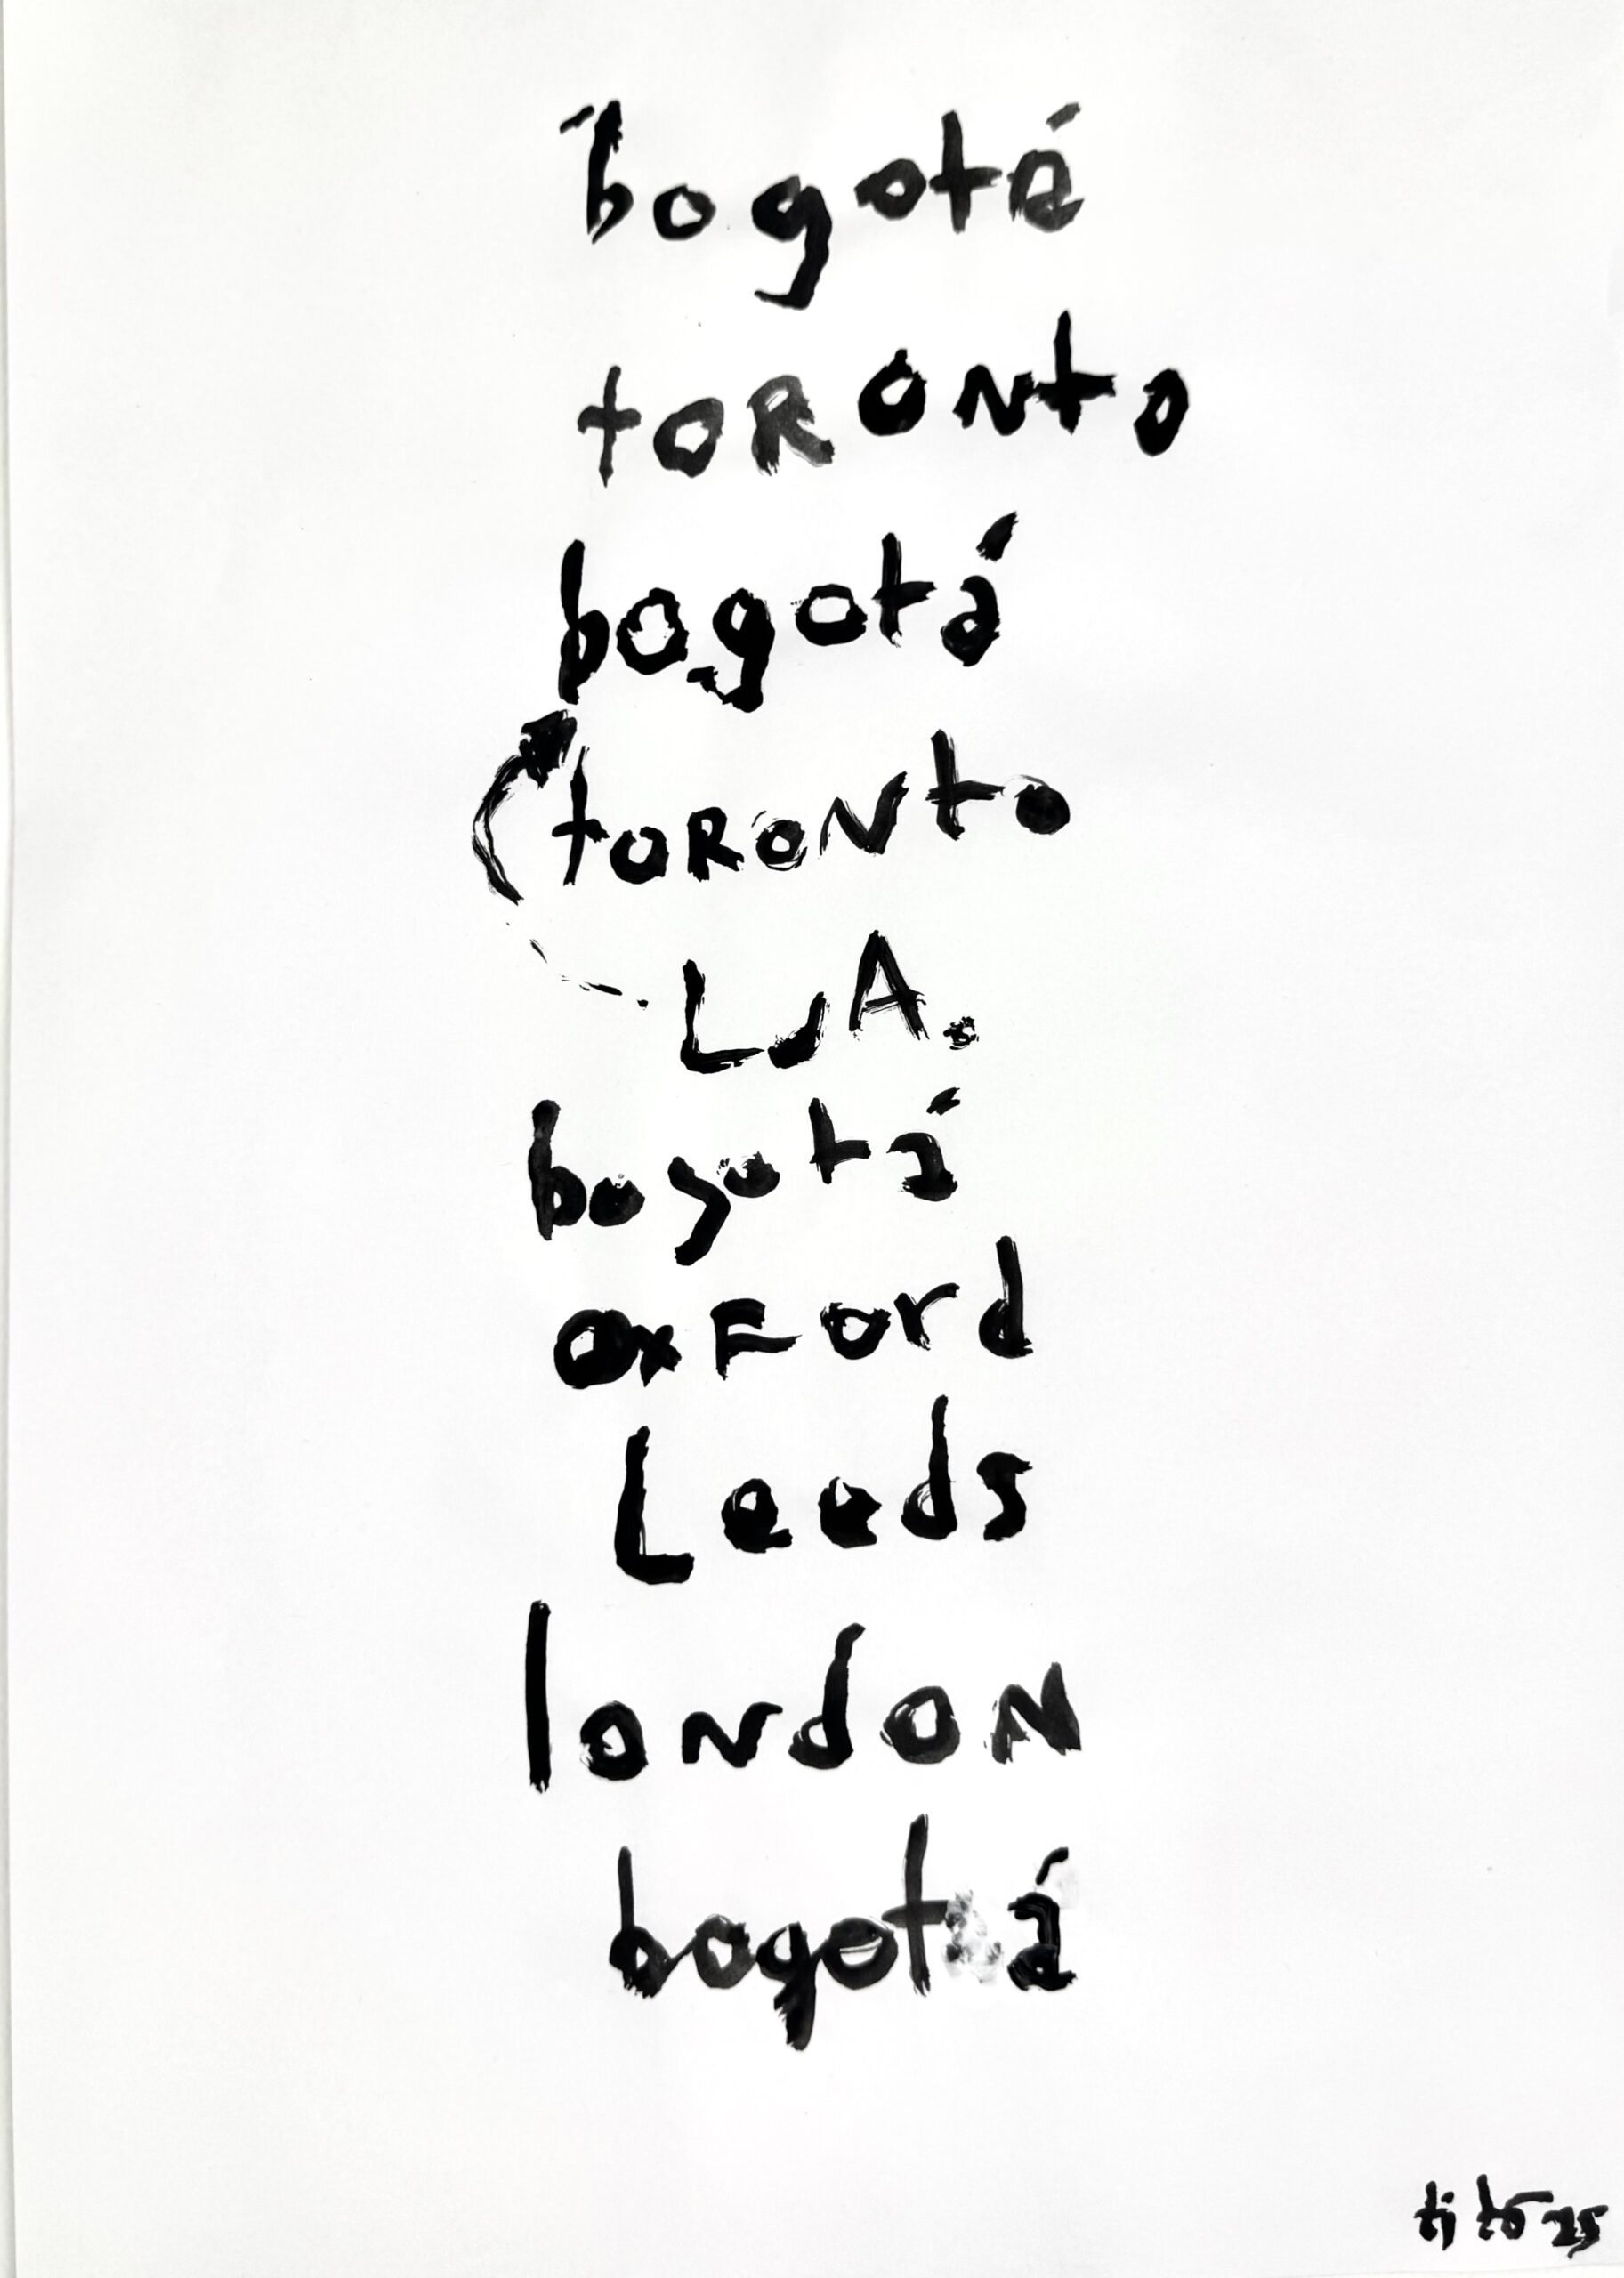 bogotá
toRonto
bogotá
toRoNto
L.A.
bogotá
oxFord
Leeds
loNdoN
bogotá
tito 25